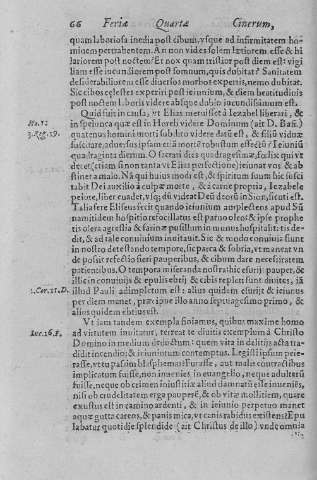 66 Feria Quarta Cinerum,
quam laboriosa inedia post cibum, vsque ad infirmitatem ho-
minem pertrahentem. An non vides solem lætiorem esse & hi
lariorem post noctem? Et nox quam tristior post diem est: vigi
liam esse iucundiorem post somnum, quis dubitat? Sanitatem
desiderabiliorem esse diuersos morbos expertis, nemo dubitat.
Sic cibos cœlestes experiri post ieiunium, & diem beatitudinis
post noctem laboris videre absque dubio iucundissimum est.
Quid fuit in causa, vt Elias meruisset à Iezabel liberari, &
in spelunca quæ est in Horeb videre Dominum (ait D. Basi.)
quatenus homini morti subdito videre datũ est, & Filiũ viduæ
suscitare, aduersus ipsam etiã mortẽ robustum effectũ? Ieiuniũ
quadraginta dierum. O sacrati dies quadragesimæ,
det (etiam si non tantam vt Elias perfectione) ieiunat vos & ab
stinet a malo. Nã qui huius modi est, & spiritum suum hic susci
tabit Dei auxilio à culpæ morte, & à carne propria, Iezabele
peiore, liber euadet, vsq; dũ videat Deũ deorũ in Sion, sicuti est.
Talia fere Eliseus fecit quando ieiunium amplectens apud Su
namitidem hospitio refocillatus est
tis olera agrestia & farinæ pusillum in munus hospitali: tis de-
dit, & ad tale conuiuium inuitauit. Sic & modo conuiuia sunt
in nostro detestando tempore, sic parca & sobria, vt maneat vn
de possit refectio fieri pauperibus, & cibum dare necessitatem
patientibus. O tempora miseranda nostra hic esurit pauper, &
ille in conuiuijs & epulis ebrij & cibis repleti sunt diuites, iã
illud Pauli adimpletum est: alius quidem esurit & ieiunus
per diem manet, præcipue illo anno septuagesimo primo, &
alius quidem ebrius est.
Vt iam tandem exempla sciamus, quibus maxime homo
ad virtutem inuitatur, terreat te diuitis exemplum à Christo
Domino in medium deductum: quem vita in delitijs acta tra-
didit incendio; & ieiuniorum contemptus. Legisti ipsum peie-
rasse, vt tu passim blasphemas? Furasse, aut male contractibus
implicatum fuisse, non inuenies in euangelio, neque adulterũ
fuisse, neque ob crimen iniustitiæ aliud damnatũ esse inuenies,
nisi ob crudelitatem erga pauperẽ, & ob vitæ mollitiem, quare
exustus est in camino ardenti, & in ieiunio perpetuo manet
aquæ gutta carens, & panis mica, vt canis rabidus existens? Epu
labatur quotidie splendide (ait Christus de illo) vnde omnia
No.ti
3. Reg. 19.
1. Cor. 11. D.
Luc. 16. F.